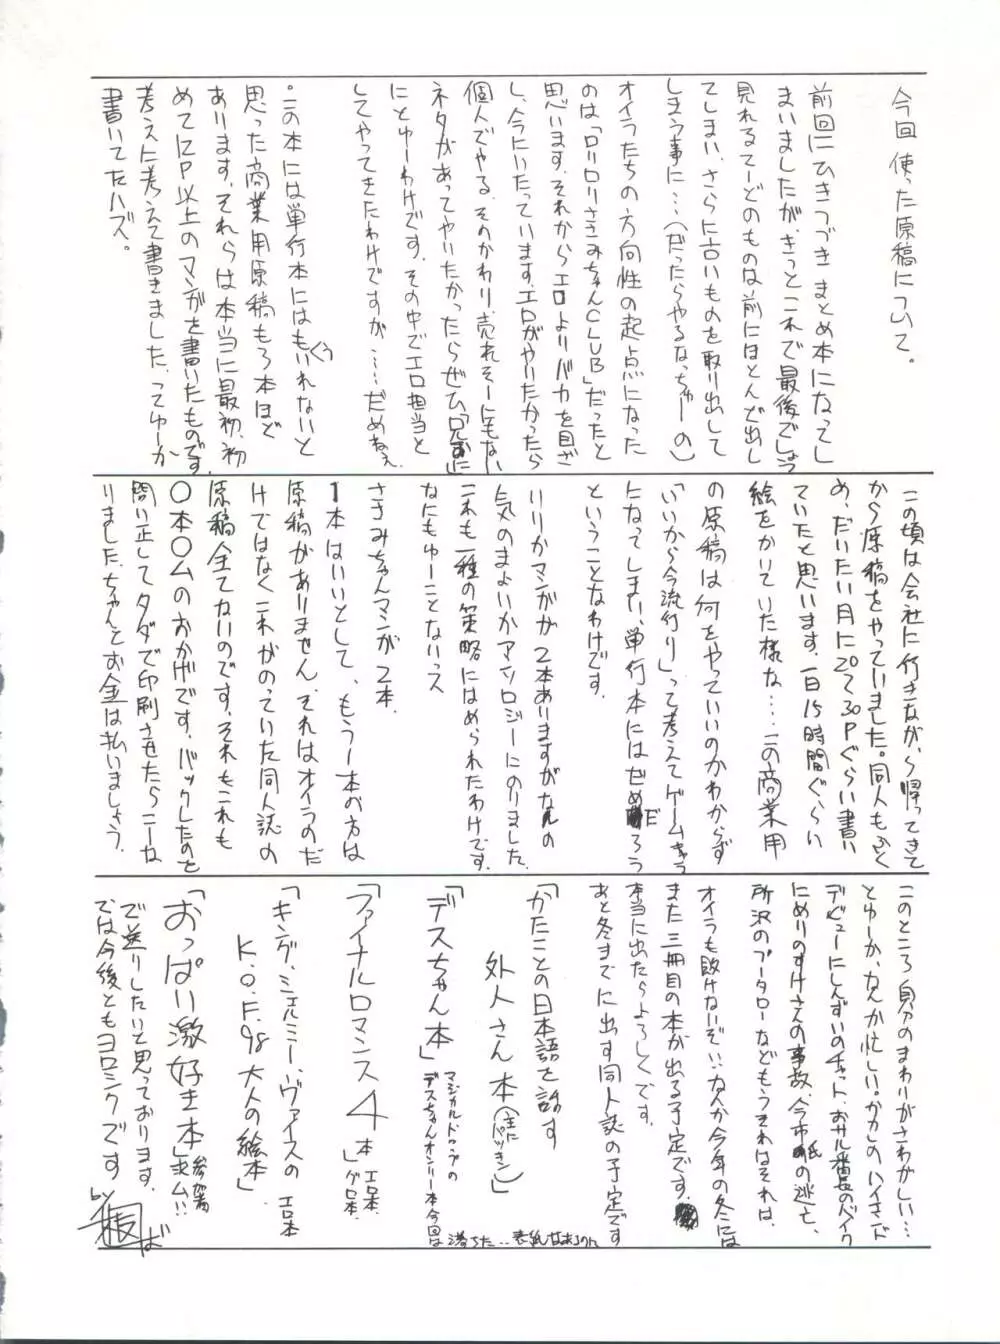 今回使った原稿について。
前回にひきつづきまとめ本になってし
まいましたが、きっとこれで最後でしょう
見れるてーどのものは前にほとんど出し
てしまい、さらに古いものを取り出して
しまう事に…(だったらやるなっちゅーの)
オイラたちの方向性の起点になった
のは「ロリロリささみちゃんCLUB」だったと
思います。それからエロよりバカを目ざ
し、今にいたっています。エロがやりたかったら
個人でやる、そのかわり、売れそーにもない
ネタがあってやりたかったらぜひ兄さに
にとゆーわけです。その中でエロ担当と
してやってきたわけですが…。だめねぇ
・この本には単行本にはもういれないと
思った商業用原稿も3本ほど
あります。それらは本当に最初、初
めて2P以上のマンガを書いたものです。
考えに考えて書きました、ってゆーか
書いてたハズ。
この頃は会社に行きながら帰ってきて
から原稿をやっていました。同人もふく
め、だいたい月に20~30Pぐらい書い
ていたと思います。一日15時間ぐらい
絵をかいていた様な…。この商業用
の原稿は何をやっていいのかわからず
「いいから今流行り」って考えてゲームキャラ
になってしまい、単行本にはぜめだろう
ということなわけです。
りりかマンガが2本ありますがなんの
気のまよいかアンソロジーにのりました
これも一種の策略にはめられたわけです。
なにもゆーことないっス
ささみちゃんマンガ2本。
1本はいいとして、もう一本の方は
原稿がありません、それはオイラのだ
けではなくこれがのっていた同人誌の
原稿全てないのです。それもこれも
〇本〇ムのおかげです。バックしたのを
問い正してタダで印刷させたらこーな
りました。ちゃんとお金は払いましょう。
このところ自分のまわりがさわがしい…
とゆーか、なんか忙しい。かかしのハイキード
デビューにしんすいのチャット、おサル番長のバイク
にめりのすけさんの事故、今市紙の逃亡、
所沢のプータローなどもうそれはそれは、
オイラも敗けないぞ!!なんか今年の冬には
また三冊目の本が出る予定です。
本当に出たらよろしくです。
あと冬までに出す同人誌の予定です
「かたことの日本語を話す
外人さん本(主にパツキン)」
「デスちゃん本」マジカルドロップの
デスちゃんオンリー本今回は
落ちた…表紙
「ファイナルロマンス4本」エロ本、
グロ本。
「キング、シェルミー、ヴァイスのエロ本
K.O.F.98大人の絵本」
「おっぱい激好き本」参加者
求ム!!
で送りしたいと思っております。
では今後ともヨロシクです
by
ば